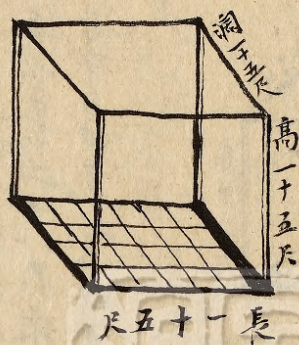 濶一十五尺
高一十五尺
長一十五尺